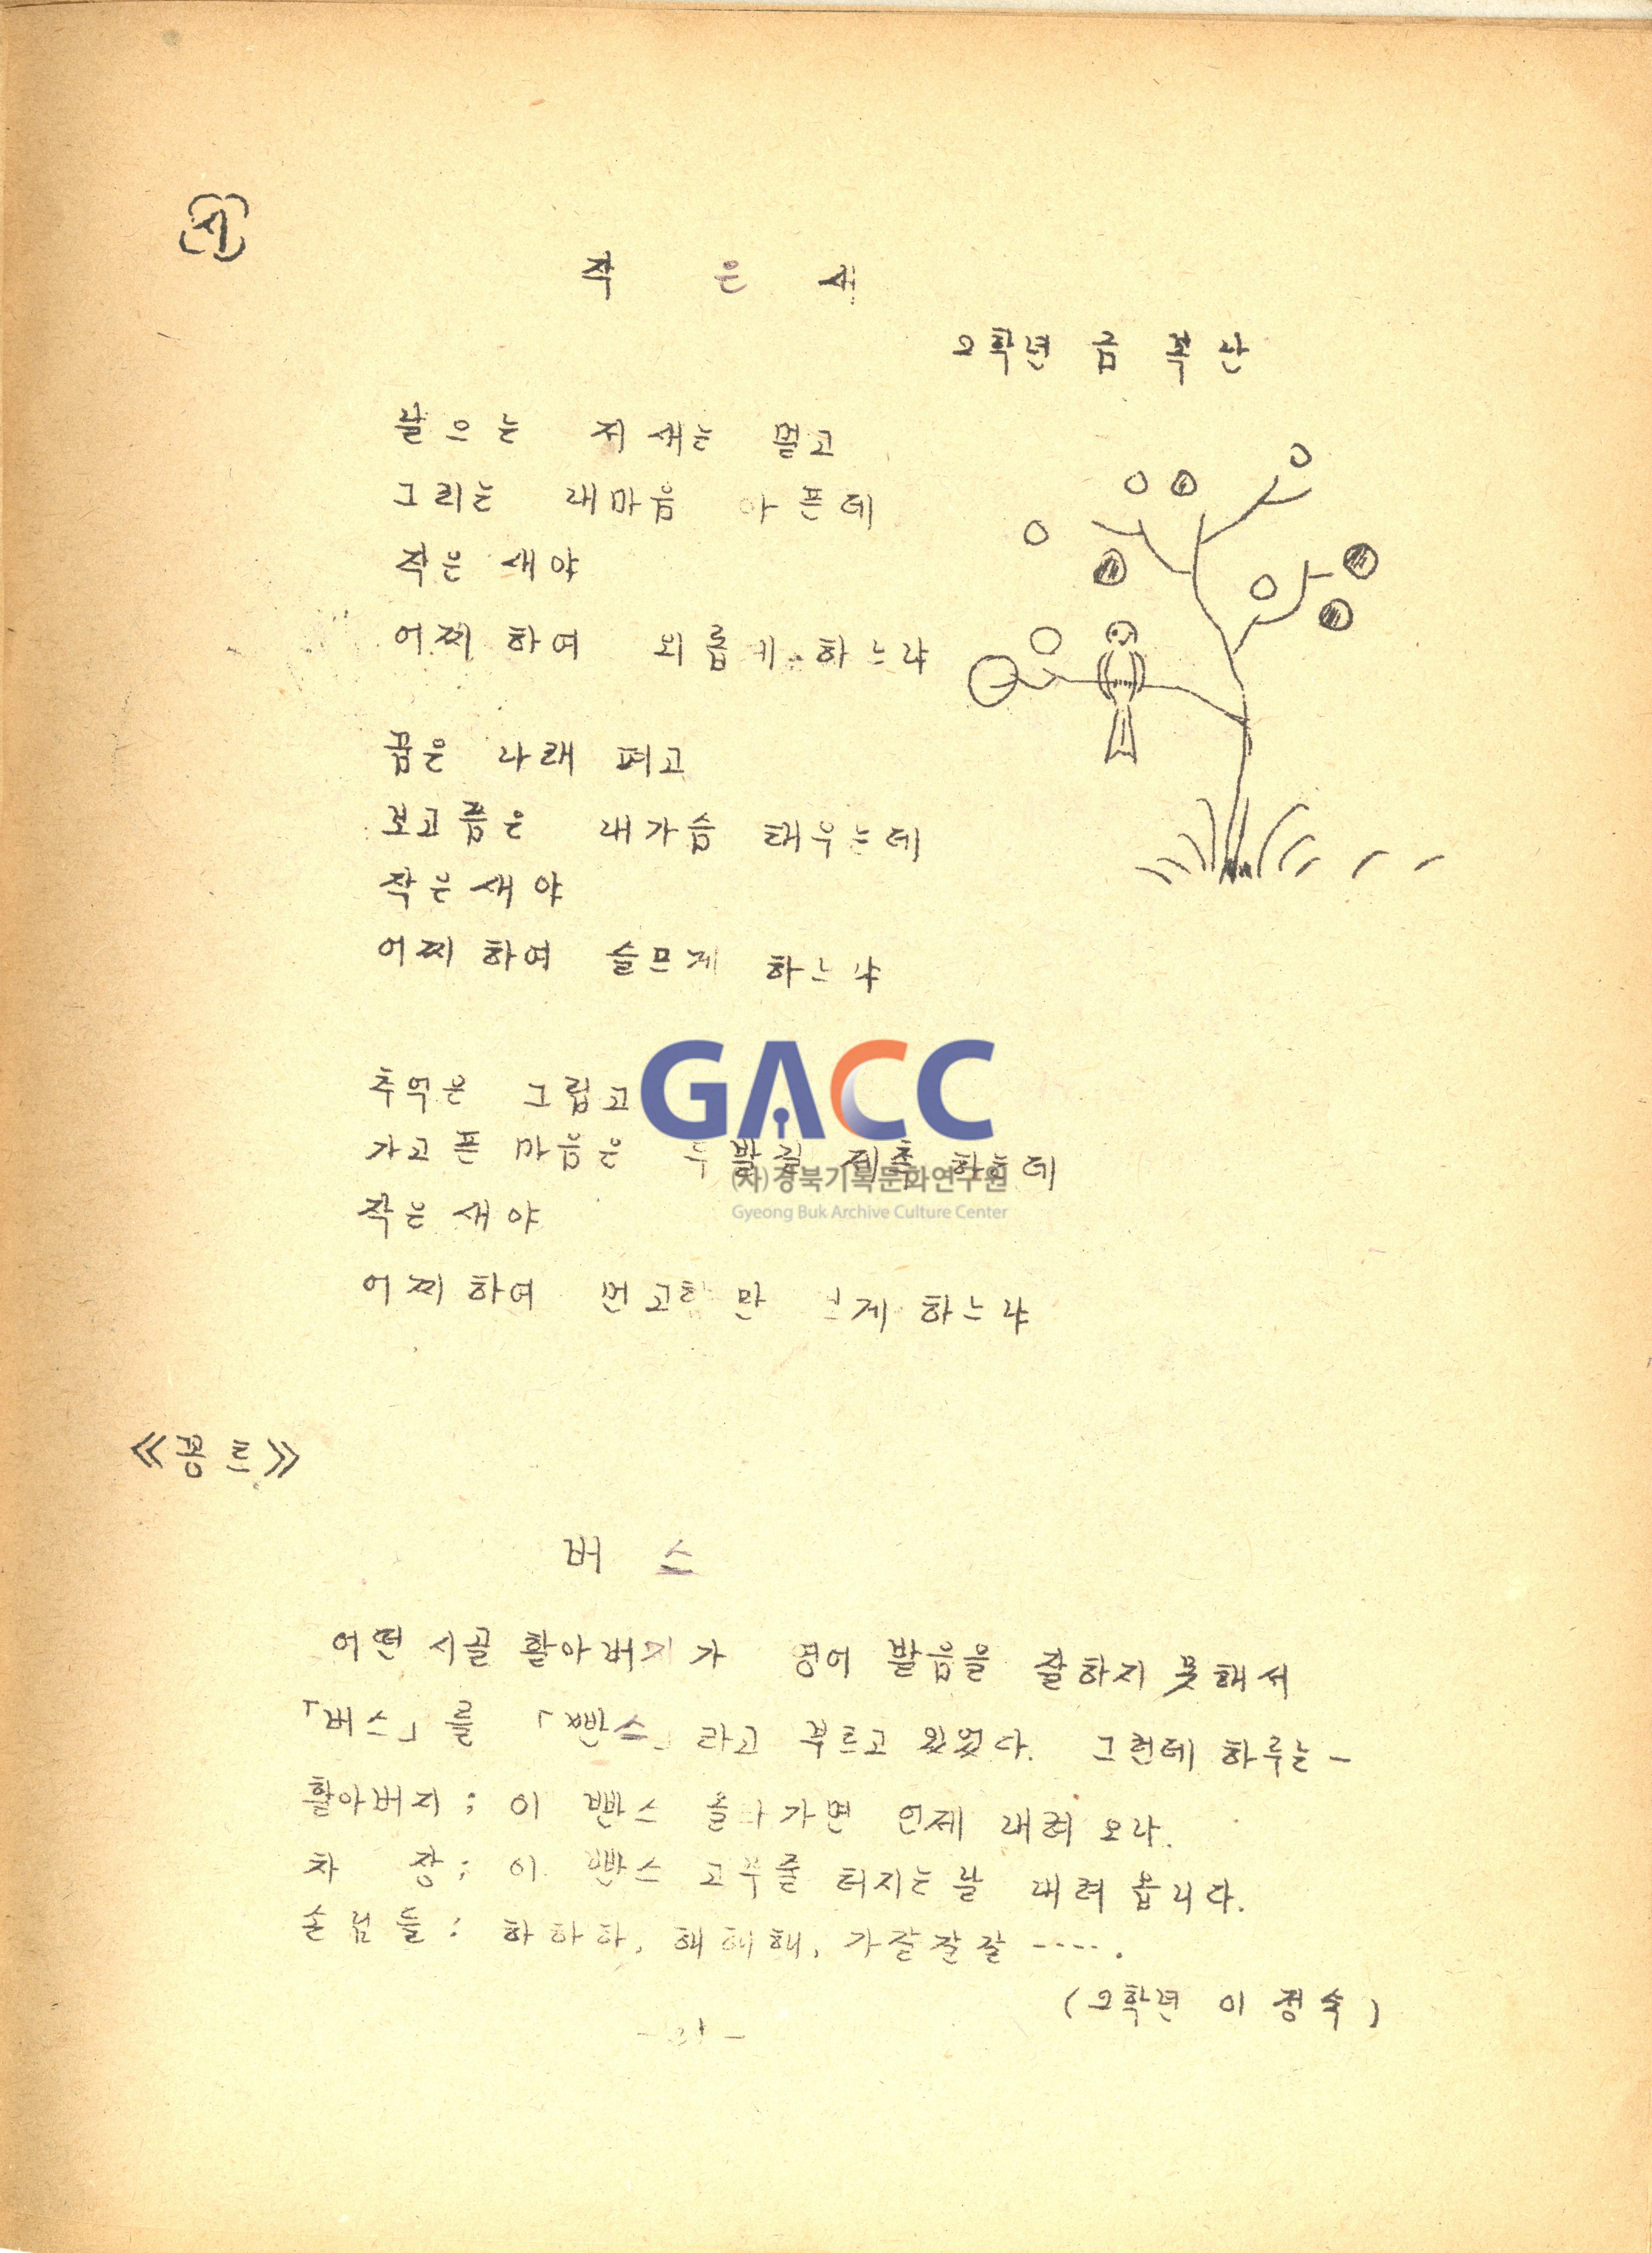 시
작 은 새
2학년 금 복 난
날으는 저새는 멀고
그리는 내마음 아픈데
작은 새야
어찌하여 외롭게 하느냐
꿈은 나래 펴고
보고픔은 내가슴 태우는데
작은새야
어찌하여 슬프게 하느냐
추억은 그립고
가고픈 마음은 두발길 제촉하는데
작은새야
어찌하여 먼고향만 하느냐
GACC
(사)경북기록문화연구원
Gyeong Buk Archive Culture Center
≪콩트≫
버 스
어떤 시골 할아버지가 영어 발음을 잘하지 못해서
「버스」를 「빤스」라고 부르고 있었다. 그런데 하루는-
할아버지; 이 빤스 올라가면 언제 내려 오나.
차 장; 이 빤스 고무줄 터지는날 내려 옵니다.
손님들: 하하하, 해해해, 가잘잘잘 ‥‥.
(2학년 이정숙)